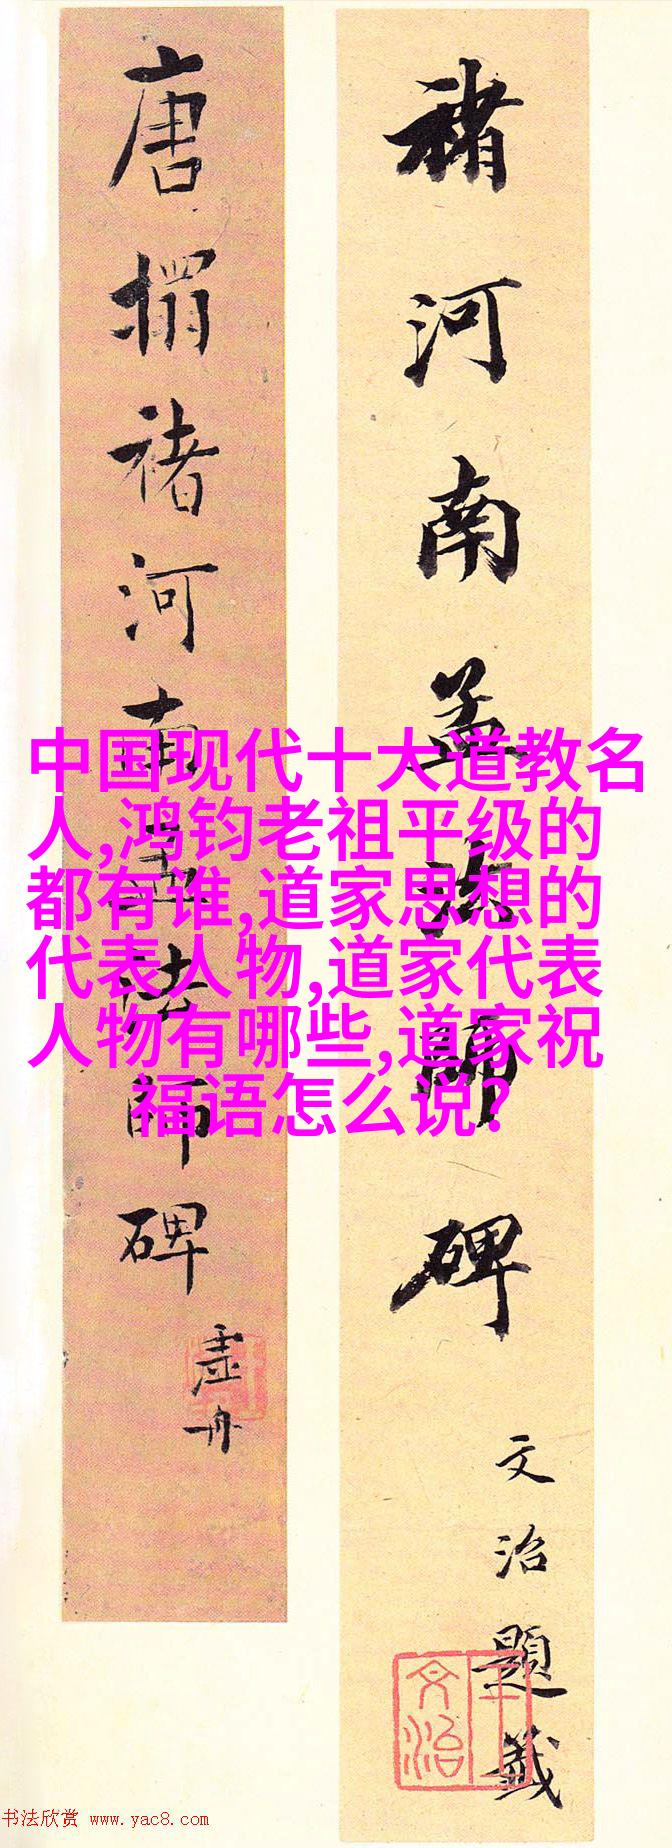 褚河南孟法師碑
文治題籤
王文治
唐搨褚河南孟法師碑
虛舟
中国现代十大道教名
人,鸿钧老祖平级的
都有谁,道家思想的
代表人物,道家代表
人物有哪些,道家祝
福语怎么说?
书法欣赏 www.yac8.com